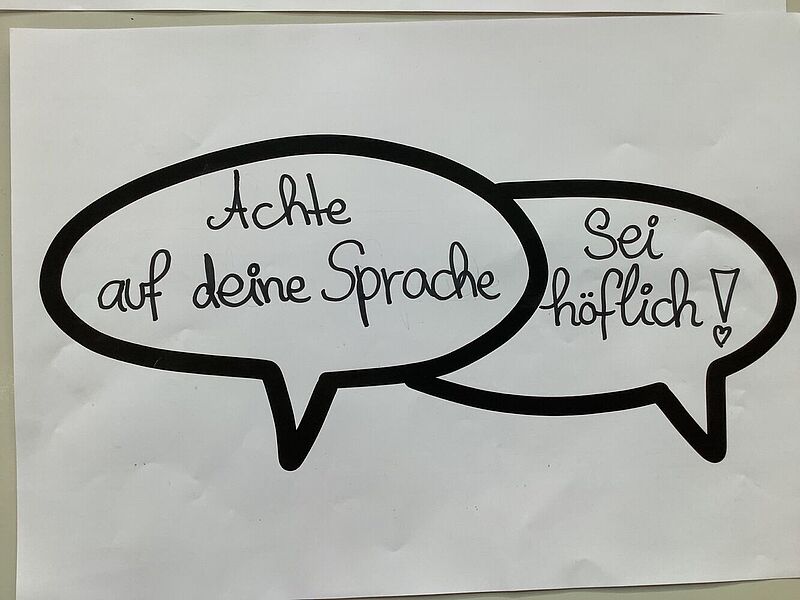 Achte
auf deine Sprache
Sei
höflich!